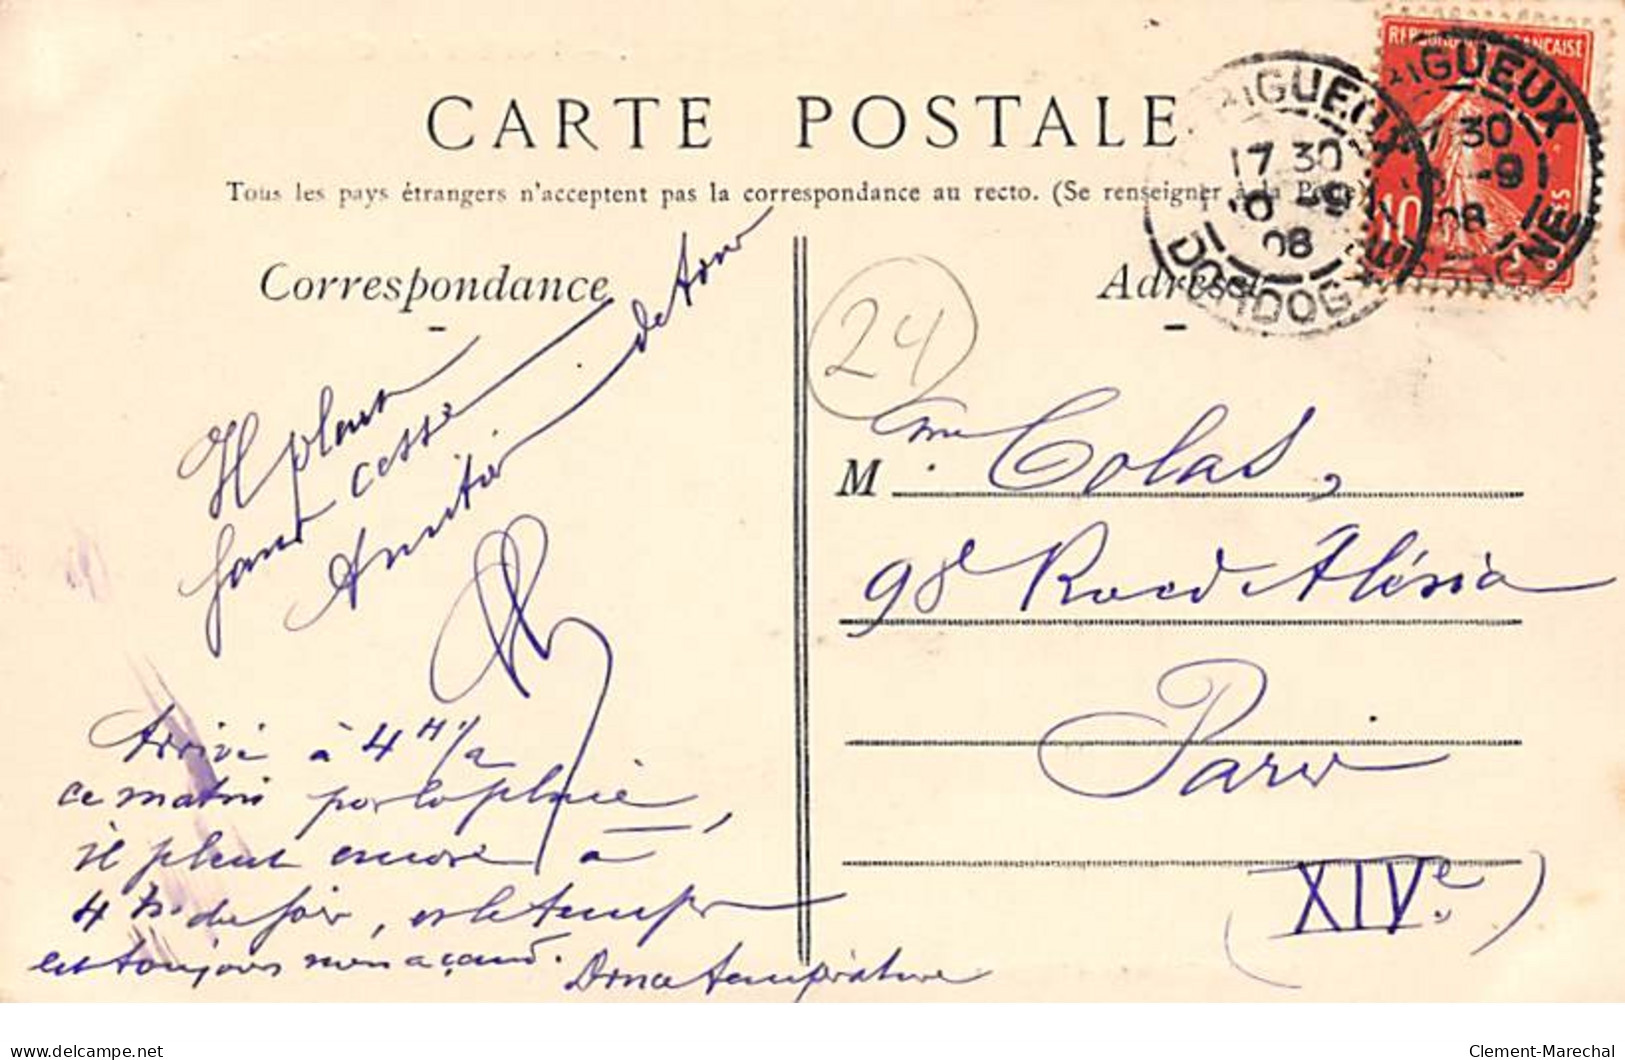 CARTE POSTALE
Tous les pays étrangers n'acceptent pas la correspondance au recto. (Se renseigner à la Poste)
Correspondance
Adresse
REPUBLIQUE FRANÇAISE
10
PERIGUEUX
17 30
10 -9
08
DORDOGNE
PERIGUEUX
17 30
10 -9
08
DORDOGNE
24
Il pleut
sans cesse
Amitiés de tous
Arrivé à 4 H 1/2
ce matin par la pluie,
il pleut encore à
4 h. du soir, et le temps
est toujours menaçant.
Douce température
M me Colas,
98 Rue d'Alésia
Paris
(XIVe)
delcampe.net
Clement-Marechal